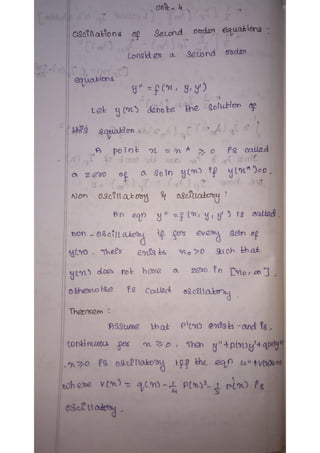 Unit - 4.
Oscillations of Second order equations :
Consider a second order
equations
y" = f (x, y, y')
Let y (x) denote the solution of
this equation.
A point x = x* ≥ 0 is called
a zero of a soln y(x) if y(x*)=0.
Non oscillatory & oscillatory :
An eqn y" = f (x, y, y') is called
non-oscillatory if for every soln of
y(x). Their exists x₀ > 0 such that
y(x) does not have a zero in [x₀, ∞].
otherwise is called oscillatory.
Theorem :
Assume that p'(x) exists and is
continuous for x ≥ 0. Then y"+p(x)y'+q(x)y
x ≥ 0 is oscillatory iff the eqn u"+v(x)u=0
where v(x) = q(x) - 1/4 p(x)² - 1/2 p'(x) is
oscillatory.